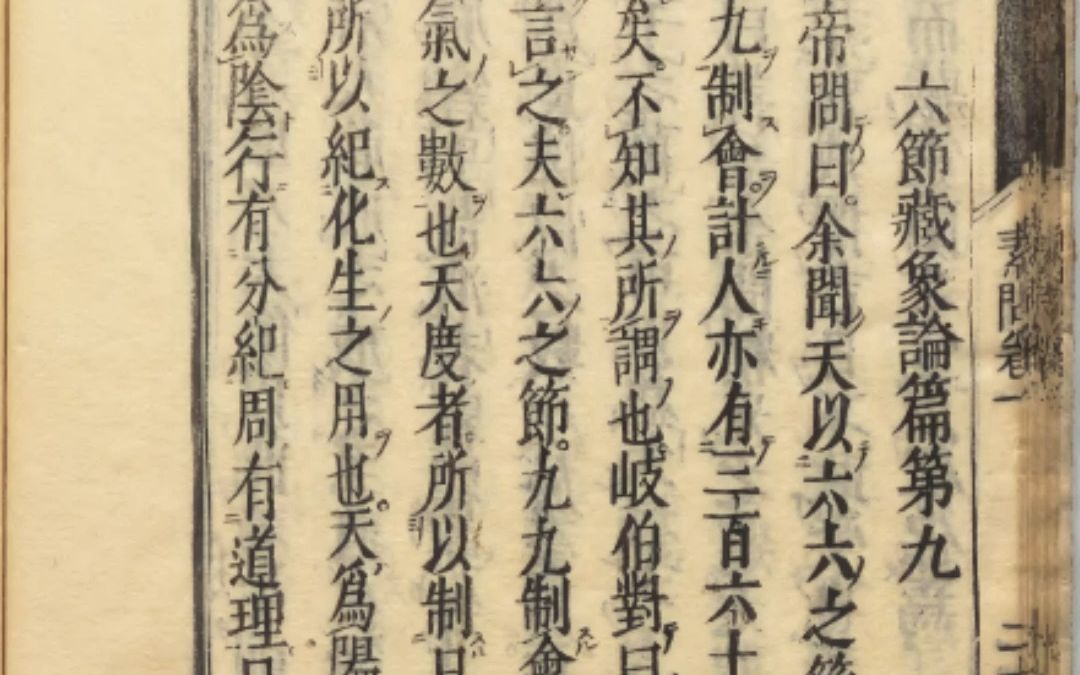 素問卷一
六節藏象論篇第九
帝問曰余聞天以六六之節
九制會計人亦有三百六十
矣不知其所謂也岐伯對曰
言之夫六六之節九九制會
氣之數也天度者所以制日
所以紀化生之用也天爲陽
爲陰行有分紀周有道理日